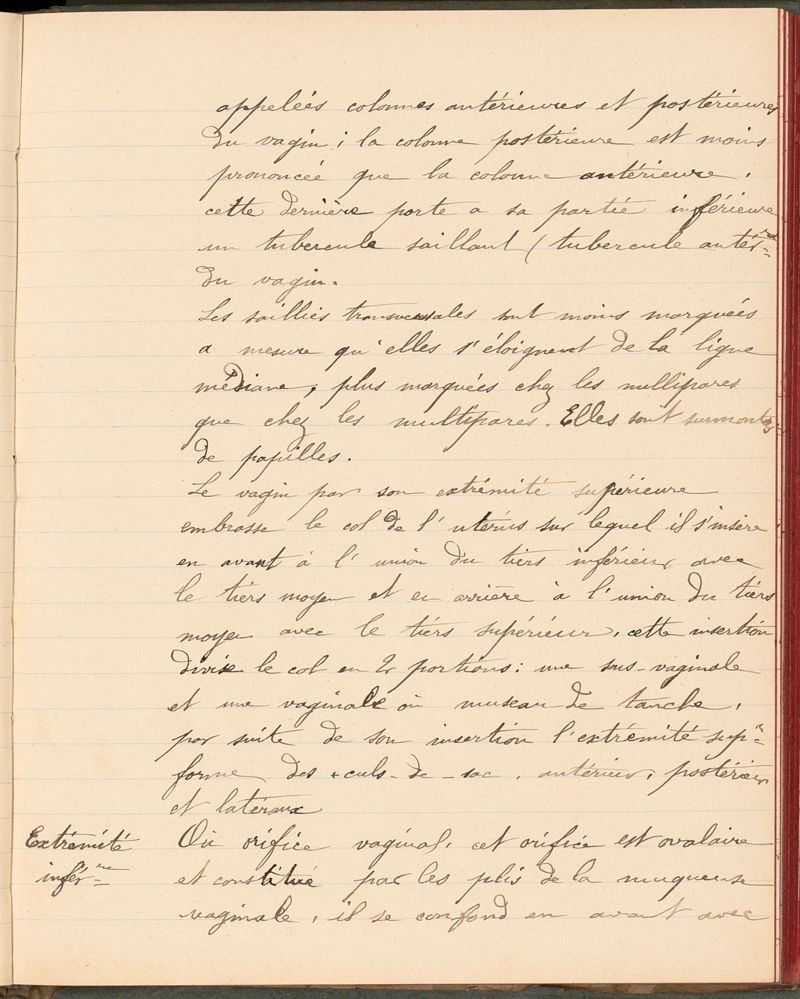 appelées colonnes antérieures et postérieures
du vagin ; la colonne postérieure est moins
prononcée que la colonne antérieure,
cette dernière porte a sa partie inférieure
un tubercule saillant ( tubercule antér^re
du vagin.
Les saillies transversales sont moins marquées
a mesure qu'elles s'éloignent de la ligne
médiane, plus marquées chez les nullipares
que chez les multipares. Elles sont surmontées
de papilles.
Le vagin par son extrémité supérieure
embrasse le col de l'utérus sur lequel il s'insère
en avant à l'union du tiers inférieur avec
le tiers moyen et en arrière à l'union du tiers
moyen avec le tiers supérieur, cette insertion
divise le col en 2 portions : une sus-vaginale
et une vaginale où museau de tanche,
par suite de son insertion l'extrémité sup^re
forme des culs-de-sac, antérieur, postérieur
et latéraux
Extrémité
infér^re
Où orifice vaginal, cet orifice est ovalaire
et constitué par les plis de la muqueuse
vaginale, il se confond en avant avec